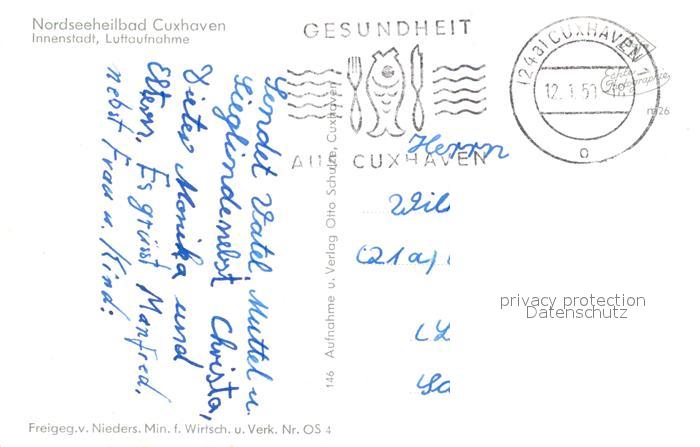 Nordseeheilbad Cuxhaven
Innenstadt, Luftaufnahme
GESUNDHEIT
AUS CUXHAVEN
(24a) CUXHAVEN 1
12. 1. 59
o
Echte
Photographie
m26
Sendet Vatel, Muttel u.
Sieglinde nebst Christa,
Dieter Monika und
Eltern. Es grüsst Manfred.
nebst Frau u. Kind:
146 Aufnahme u. Verlag Otto Schulze, Cuxhaven
Herrn
Wil
(21a)
privacy protection
Datenschutz
Freigeg.v. Nieders. Min. f. Wirtsch. u. Verk. Nr. OS 4